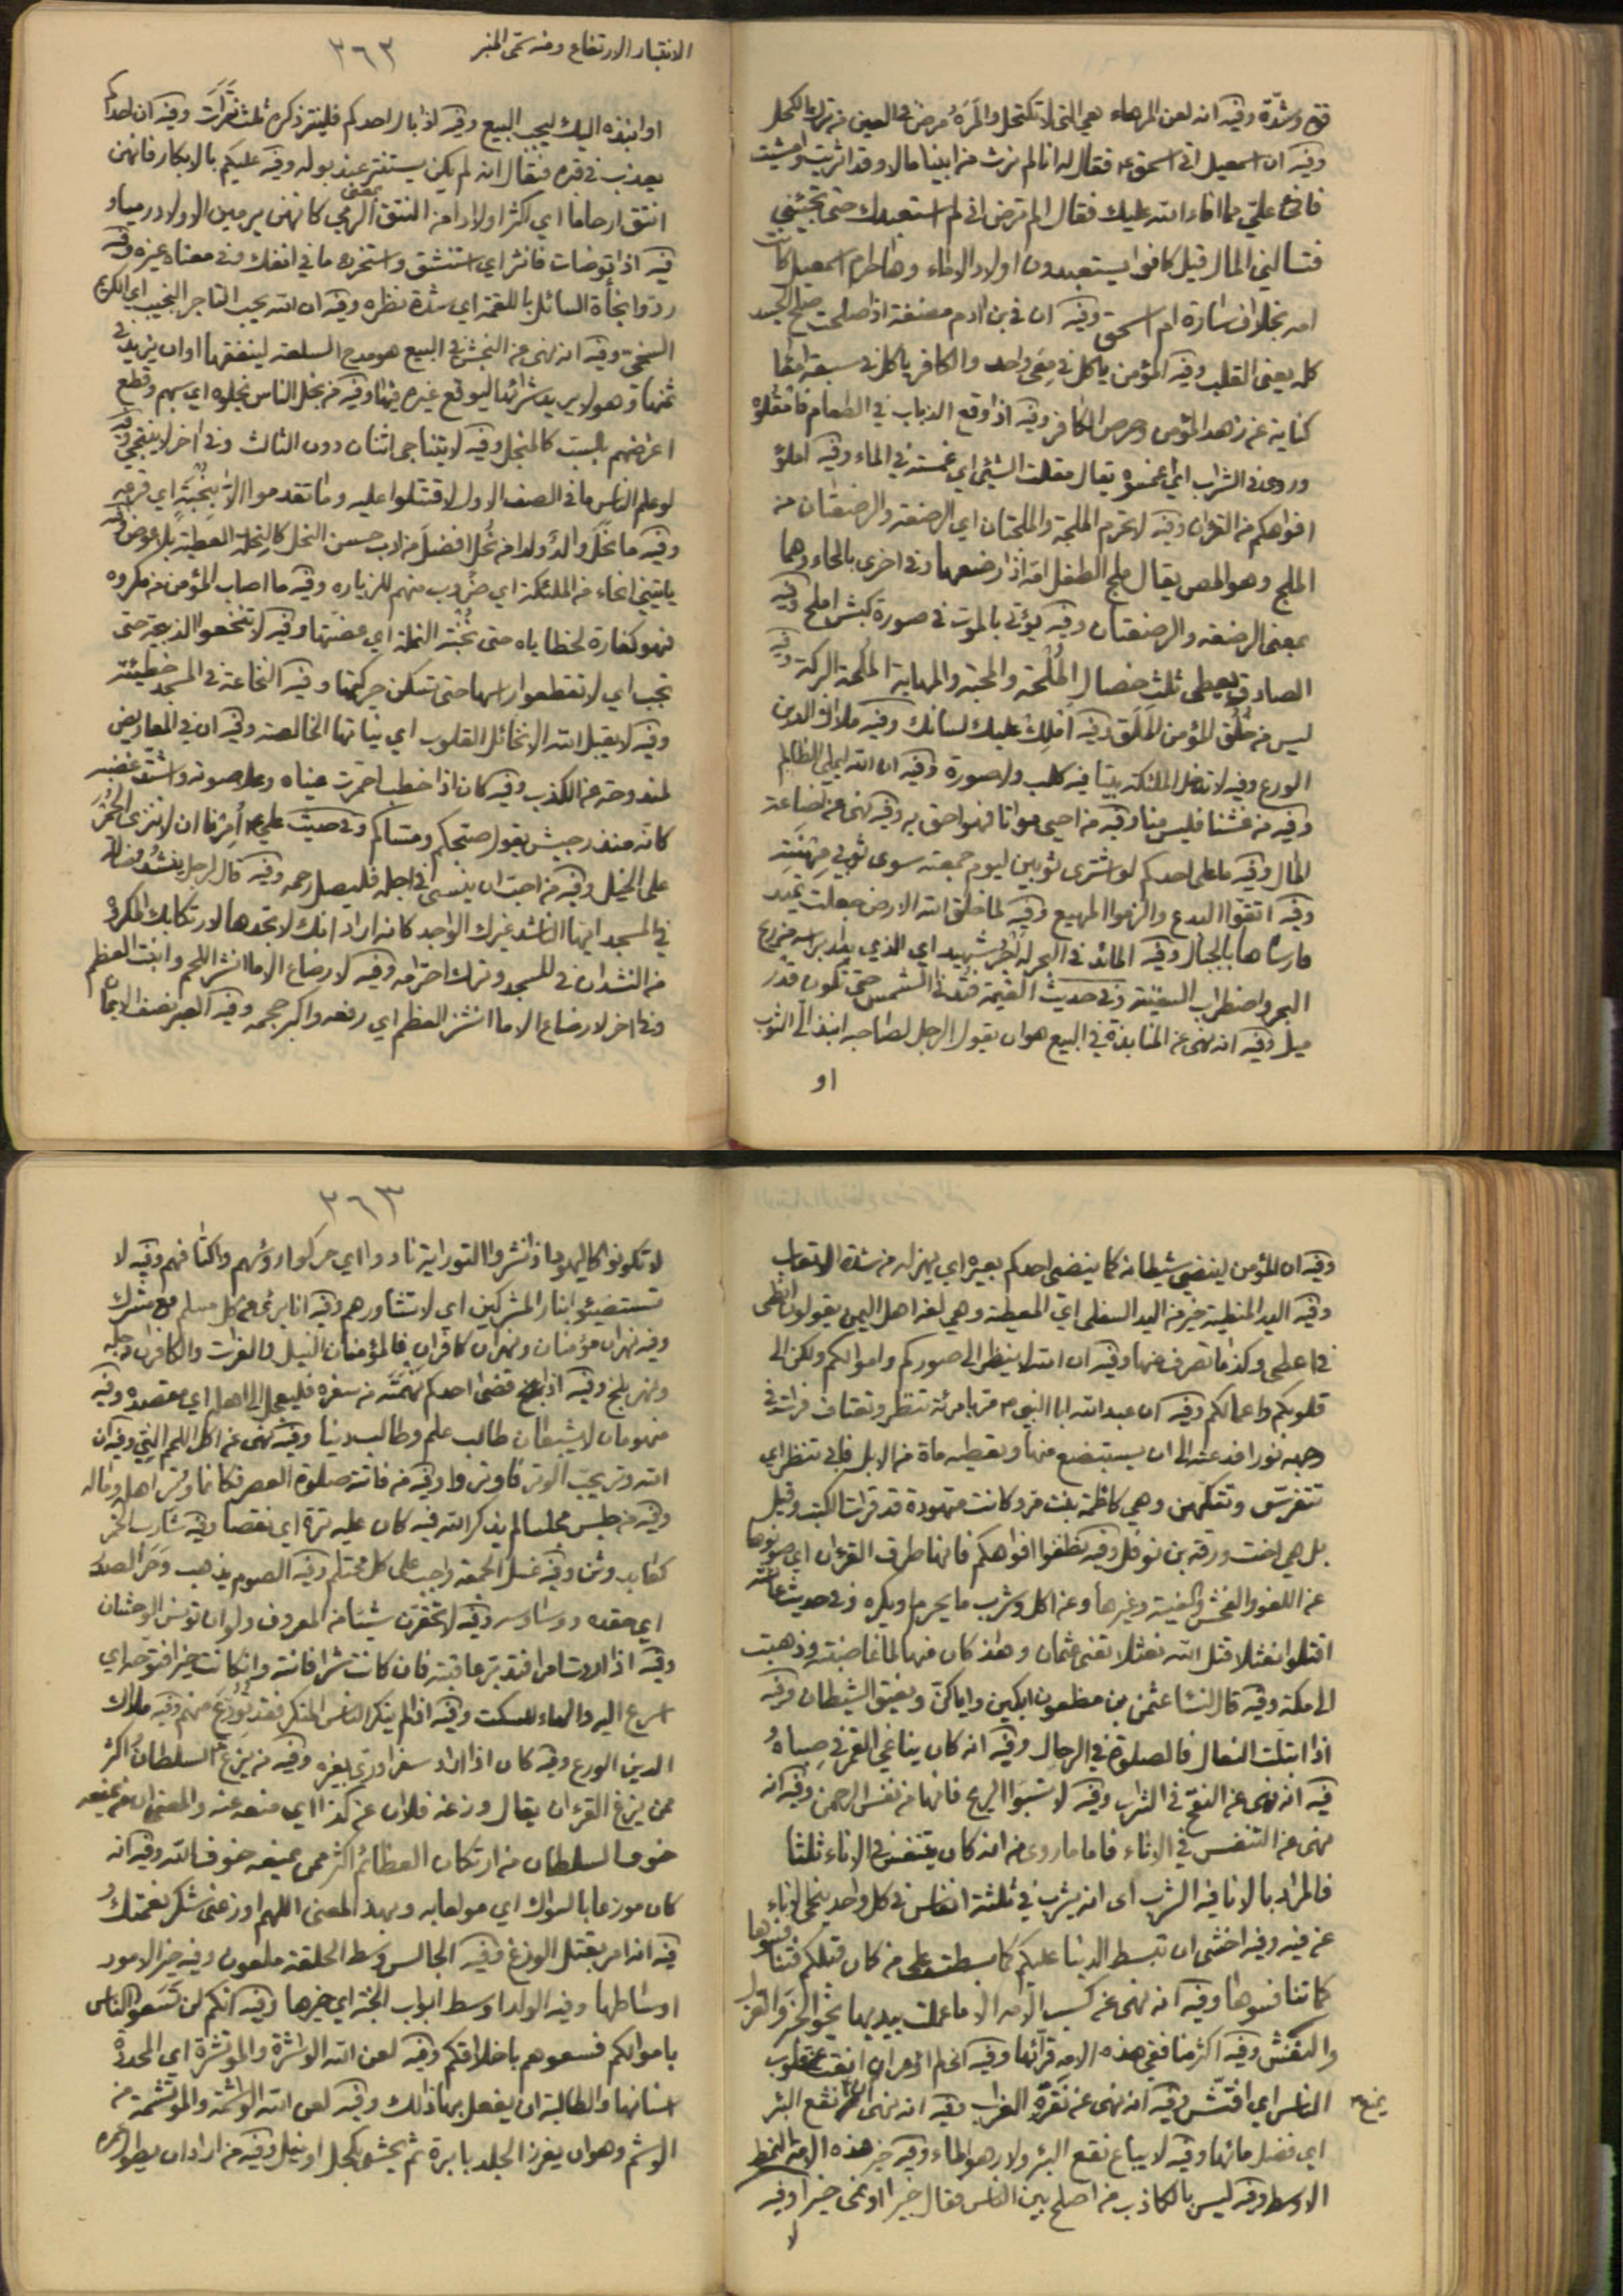 قوة وشدّة وفيه انه لعن المرهاء هي التي لا تكتحل والمَرَهُ مرض في العين من ترك الكحل
وفيه ان اسمعيل اتى اسحق ع فقال له انا لم نرث من ابينا مالا وقد اثريت وامشيت
فافئ عليّ مما افاء الله عليك فقال الم ترض اني لم استعبدك حتى تجيئني
فتسألني المال قيل كانوا يستعبدون اولاد الاماء وهاجر ام اسمعيل كانت
امه بخلاف سارة ام اسحق وفيه ان في بن ادم مضغة اذا صلحت صلح الجسد
كله يعني القلب وفيه المؤمن ياكل في مِعىً واحد والكافر ياكل في سبعة امعا
كناية عن زهد المؤمن وحرص الكافر وفيه اذا وقع الذباب في الطعام فامقُلوُه
وروى في الشراب اي اغمسوه يقال مقلت الشيء اي غمسته في الماء وفيه املؤ
افواهكم من القران وفيه لا تحرم الملجة والملجتان اي الرضعة والرضعتان من
الملج وهو المص يقال ملج الطفل امه اذا رضعها وفي اخرى بالحاء وهما
بمعنى الرضعة والرضعتان وفيه يؤتى بالموت في صورة كبش املح وفيه
الصادق يعطى ثلث خصال المُلْحة والمحبة والمهابة المُلحة البركة وفيه
ليس من خُلُق المؤمن المَلَق وفيه املِك عليك لسانك وفيه ملاك الدين
الورع وفيه لا تدخل الملئكة بيتا فيه كلب ولا صورة وفيه ان الله ليملي الظالم
وفيه من غشنا فليس منا وفيه من احيى مواتا فهو احق به وفيه نهى عن اضاعة
المال وفيه ما على احدكم لو اشترى ثوبين ليوم جمعته سوى ثوبي مِهْنَتِه
وفيه اتقوا البدع والزموا المهيع وفيه لما خلق الله الارض جعلت تميد
فارساها بالجبال وفيه المائد في البحر له اجر شهيد اي الذي يدار براسه من ريح
البحر واضطراب السفينة وفي حديث القيمة فتدنى الشمس حتى تكون قدر
ميل وفيه انه نهى عن المنابذة في البيع هو ان يقول الرجل لصاحبه انبذ الي الثوب
او
الانتبار الارتفاع ومنه سمى المنبر
٣٦٢
او انبذه اليك ليجب البيع وفيه اذا بال احدكم فلينتر ذكره ثلث نَتَرَات وفيه ان احدكم
يعذب في قبره فيقال انه لم يكن يستنتر عند بوله وفيه عليكم بالابكار فانهن
انتق ارحاما اي اكثر اولادا من النتق بمعنى الرمي كانهن يرمين الاولاد رميا و
فيه اذا توضات فانثر اي استنشق واستخرج ما في انفك وفي معناه غيره وفيه
ردّوا نجأة السائل باللقمة اي شدة نظره وفيه ان الله يحب التاجر النجيب اي الكريم
السخي وفيه انه نهى عن النجش في البيع هو مدح السلعة لينفقها او ان يزيد في
ثمنها وهو لا يريد شرائها ليوقع غيره فيها وفيه من نجل الناس نجلوه اي سبهم وقطع
اعراضهم بالسبّ كالمنجل وفيه لا يتناجى اثنان دون الثالث وفي اخر لا ينتجي وفيه
لو علم الناس ما في الصف الاول لاقتتلوا عليه وما تقدموا الا بنُحْبَةٍ اي قرعة
وفيه ما نَحَلَ والدٌ ولدا من نُحْل افضلَ من ادب حسن النحل كالنحلة العطية بلا عوض وفيه
ياتيني انحاء من الملئكة اي ضُرُوب منهم للزيارة وفيه ما اصاب المؤمن من مكروه
فهو كفارة لخطاياه حتى نُخْبَة النملة اي عضتها وفيه لا تنخعوا الذبيحة حتى
تجب اي لا تقطعوا راسها حتى تسكن حركتها وفيه النخاعة في المسجد خطيئة
وفيه لا يقبل الله الا نخائل القلوب اي نياتها الخالصة وفيه ان في المعاريض
لمندوحة عن الكذب وفيه كان اذا خطب احمرت عيناه وعلا صوته واشتد غضبه
كانه منذر جيش يقول صبحكم ومساكم وفي حديث علي ع أُمِرنا ان لا ننزى الحُمُرَ
على الخيل وفيه من احبّ ان ينسى في اجله فليصل رحمه وفيه قال لرجل ينشُدُ ضالة
في المسجد ايها الناشد غيرك الواجد كانه اراد انك لا تجدها لارتكابك المكروه
من النشدان في المسجد وترك احترامه وفيه لا رضاع الا ما انشر اللحم وانبت العظم
وفي اخر لا رضاع الا ما انشز العظم اي رفعه واكبر حجمه وفيه الصبر نصف الايمان
وفيه ان المؤمن لينضي شيطانه كما ينضي احدكم بعيره اي يهزله من شدة الاتعاب
وفيه اليد المنطية خير من اليد السفلى اي المعطية وهي لغة اهل اليمن يقولون انطى
في اعطى وكذا ما تصرف منها وفيه ان الله لا ينظر الى صوركم واموالكم ولكن الى
قلوبكم واعمالكم وفيه ان عبد الله ابا النبي ص مرّ بامرئة تنظر وتعتاف فرات في
وجهه نورا فدعته الى ان يستبضع منها وتعطيه ماة من الابل فابى تنظر اي
تتفرس وتتكهن وهي كاظمة بنت مرّ وكانت متهودة قد قرات الكتب وقيل
بل هي اخت ورقة بن نوفل وفيه نظفوا افواهكم فانها طرق القرءان اي صونوها
عن اللغو والفحش والغيبة وغيرها وعن اكل وشرب ما يحرم او يكره وفي حديث عائشة
اقتلوا نعثلا قتل الله نعثلا تعني عثمان وهذا كان منها لما غاضبته وذهبت
الى مكة وفيه قال لنسا عثمن بن مظعون ابكين واياكن ونعيق الشيطان وفيه
اذا ابتلّت النعال فالصلوة في الرحال وفيه انه كان يناغي القمر في صِباهُ
فيه انه نهى عن النفخ في الشراب وفيه لا تسبوا الريح فانها من نفس الرحمن وفيه انه
نهى عن التنفس في الاناء فاما ما روى من انه كان يتنفس في الاناء ثلثا
فالمراد بالانا فيه الشرب اى انه يشرب في ثلثة انفاس في كل واحد ينحى الاناء
عن فيه وفيه اخشى ان تبسط الدنيا عليكم كما بسطت على من كان قبلكم فتنافسوها
كما تنافسوها وفيه انه نهى عن كسب الامة الا ما عملت بيديها نحو الخبز والغزل
والنفش وفيه اكثر منافقي هذه الامة قرّائها وفيه انقب عن قلوب
الناس اي افتّش وفيه انه نهى عن نَقْرة الغراب وفيه انه نهى ان يمنع نقع البئر
اي فضل مائها وفيه لا يباع نقع البئر ولا رهو الماء وفيه خير هذه الامة النمط
الاوسط وفيه ليس بالكاذب من اصلح بين الناس فقال خيرا او نمى خيرا وفيه
لا
٣٦٣
لا تكونوا كاليهود اذا نشروا التوراية نادوا اي حركوا رؤسهم واكتافهم وفيه لا
تستضيئوا بنار المشركين اي لا تشاورهم وفيه انا بري من كل مسلم مع مشرك
وفيه نهران مؤمنان ونهران كافران فالمؤمنان النيل والفرات والكافران دجلة
ونهر بلخ وفيه اذا قضى احدكم نَهْمَتَه من سفره فليعجل الى اهله اي مقصده وفيه
منهومان لا يشبعان طالب علم وطالب دنيا وفيه نهى عن اكل اللحم النيّ وفيه ان
الله وتر يحبّ الوتر فاوتروا وفيه من فاتته صلوة العصر فكانما وُتِر اهله وماله
وفيه من جلس مجلسا لم يذكر الله فيه كان عليه ترة اي نقصا وفيه شارب الخمر
كعابد وثن وفيه غسل الجمعة واجب على كل محتلم وفيه الصوم يذهب وَحَرَ الصدر
اي حقده ووساوسه وفيه لا تحقرن شيئا من المعروف ولو ان تونس الوحشان
وفيه اذا اردت امرا فتدبّر عاقبته فان كانت شرا فانته وان كانت خيرا فتوحه اي
اسرع اليه والهاء للسكت وفيه اذا لم ينكر الناس المنكر فقد تُوُدِّع منهم وفيه ملاك
الدين الورع وفيه كان اذا اراد سفرا ورّى بغيره وفيه من يزع السلطانُ اكثر
ممن يزع القرءان يقال وزعه فلان عن كذا اي منعه عنه والمعنى ان من يمنعه
خوف السلطان من ارتكاب العظائم اكثر ممن يمنعه خوف الله وفيه انه
كان موزعا بالسواك اي مولعا به وبهذا المعنى اللهم اوزعني شكر نعمتك و
فيه انه امر بقتل الوزغ وفيه الجالس وسط الحلقة ملعون وفيه خير الامور
اوساطها وفيه الولد اوسط ابواب الجنة اي خيرها وفيه انكم لن تَسَعوا الناس
باموالكم فسعوهم باخلاقكم وفيه لعن الله الواشرة والموتشرة اي المحددة
اسنانها والطالبة ان يفعل بها ذلك وفيه لعن الله الواشمة والموتشمة من
الوشم وهو ان يغرز الجلد بابرة ثم يحشى بكحل او نيل وفيه من اراد ان يطول عمره